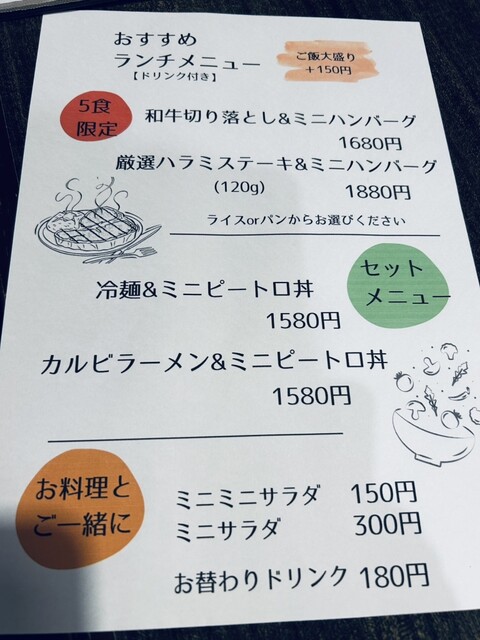 おすすめ
ランチメニュー
【ドリンク付き】
ご飯大盛り
＋150円
5食
限定
和牛切り落とし&ミニハンバーグ
1680円
厳選ハラミステーキ&ミニハンバーグ
(120g) 1880円
ライスorパンからお選びください
セット
メニュー
冷麺&ミニピートロ丼
1580円
カルビラーメン&ミニピートロ丼
1580円
お料理と
ご一緒に
ミニミニサラダ 150円
ミニサラダ 300円
お替わりドリンク 180円